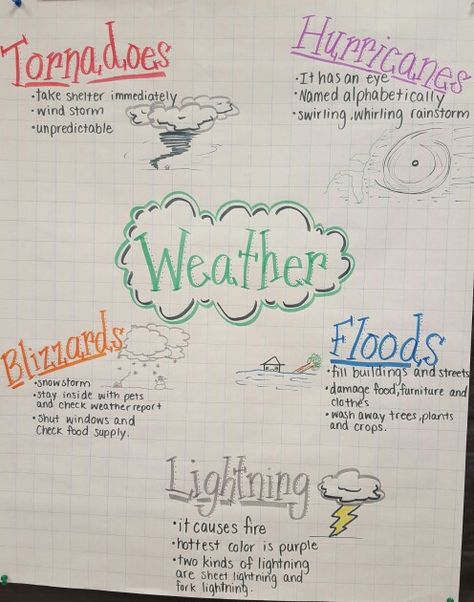 Tornadoes
•take shelter immediately
•wind storm
•unpredictable
Hurricanes
•It has an eye
•Named alphabetically
•swirling, whirling rainstorm
Weather
Blizzards
•snowstorm
•stay inside with pets
and check weather report
•shut windows and
check food supply.
Floods
•fill buildings and streets
•damage food, furniture and
clothes
•wash away trees, plants
and crops.
Lightning
•it causes fire
•hottest color is purple
•two kinds of lightning
are sheet lightning and
fork lightning.